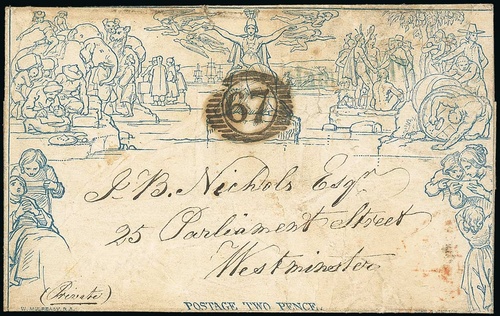 67
J. B. Nichols Esqr
25 Parliament Street
Westminster
(Private)
W. MULREADY. R.A.
POSTAGE TWO PENCE.